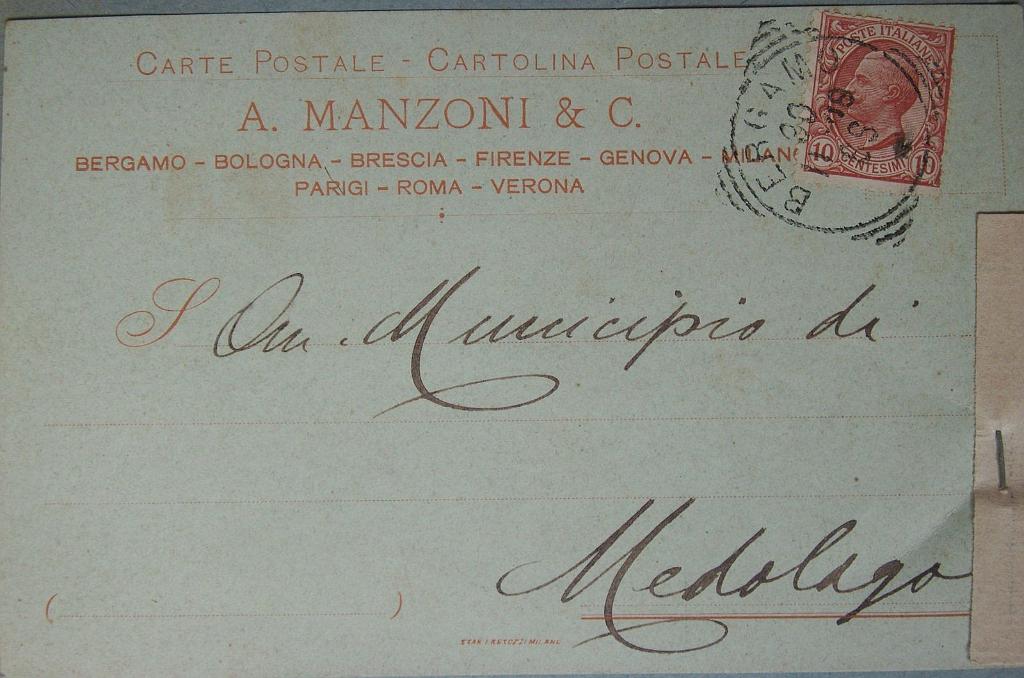 CARTE POSTALE - CARTOLINA POSTALE
A. MANZONI & C.
BERGAMO - BOLOGNA - BRESCIA - FIRENZE - GENOVA - MILANO
PARIGI - ROMA - VERONA
POSTE ITALIANE
10 CENTESIMI 10
BERGAMO
S On. Municipio di
Medolago